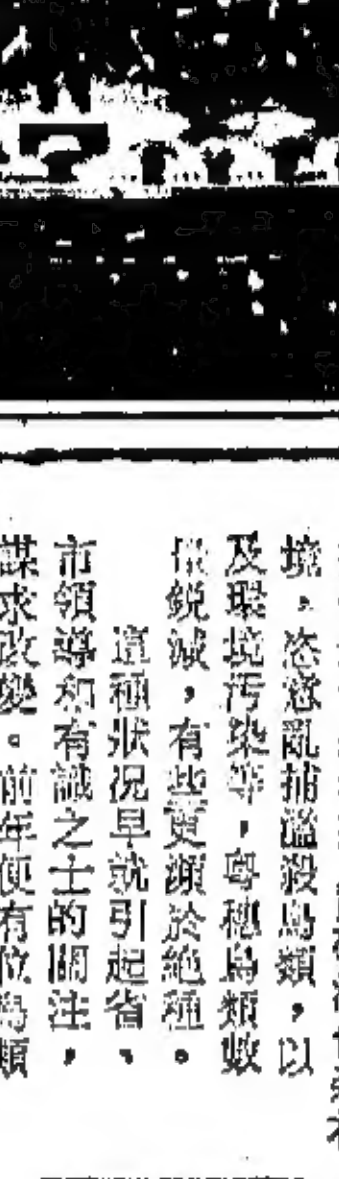 境，恣意亂捕濫殺鳥類，以
及環境污染等，粵穗鳥類數
量銳減，有些更瀕於絶種。
這種狀况早就引起省、
市領導和有識之士的關注，
謀求改變。前年便有位鳥類